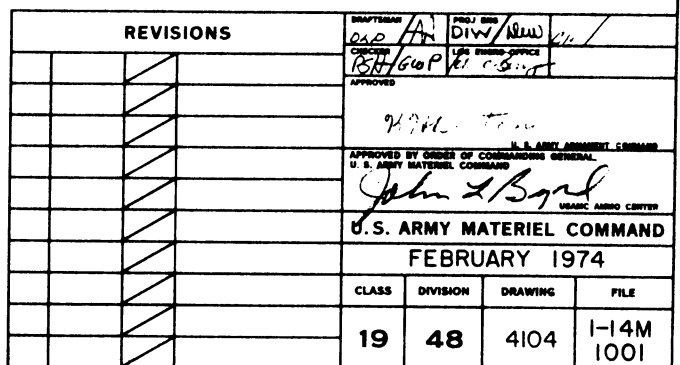 REVISIONS
DRAFTSMAN
PROJ ENG
DIW
CHECKER
LOG ENGRG OFFICE
APPROVED
U. S. ARMY ARMAMENT COMMAND
APPROVED BY ORDER OF COMMANDING GENERAL,
U. S. ARMY MATERIEL COMMAND
John L Byrd
USAMC AMMO CENTER
U.S. ARMY MATERIEL COMMAND
FEBRUARY 1974
CLASS DIVISION DRAWING FILE
19 48 4104 1-14M
1001